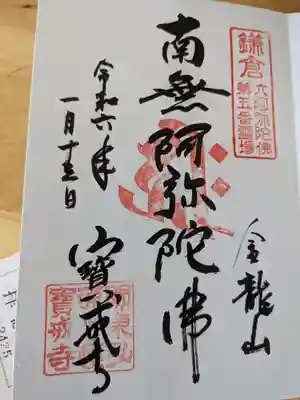 鎌倉
六阿弥陀佛
第五番霊場
金龍山
南無阿弥陀佛
寳戒寺
令和六年
一月十五日
寳戒寺